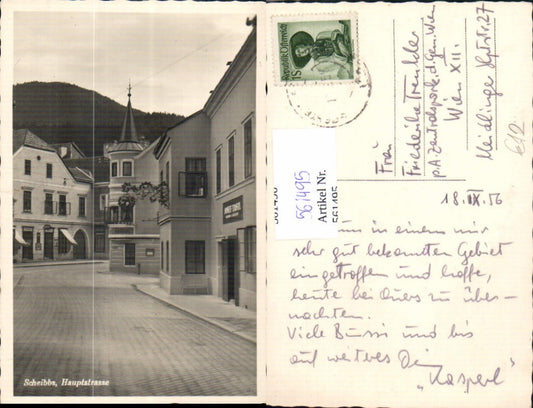 Scheibbs, Hauptstrasse
Republik Österreich
1S
561495
Artikel Nr.
561495
Frau
Friederike Trenkler
p.A. Zentralspark. d. Gem. Wien
Wien XII.
Meidlinger Hptstr. 27
612
18. IX. 56
in einem mir
sehr gut bekannten Gebiet
eingetroffen und hoffe,
heute bei Euers zu über-
nachten.
Viele Bussi und bis
auf weiteres Dein
„Kasperl"